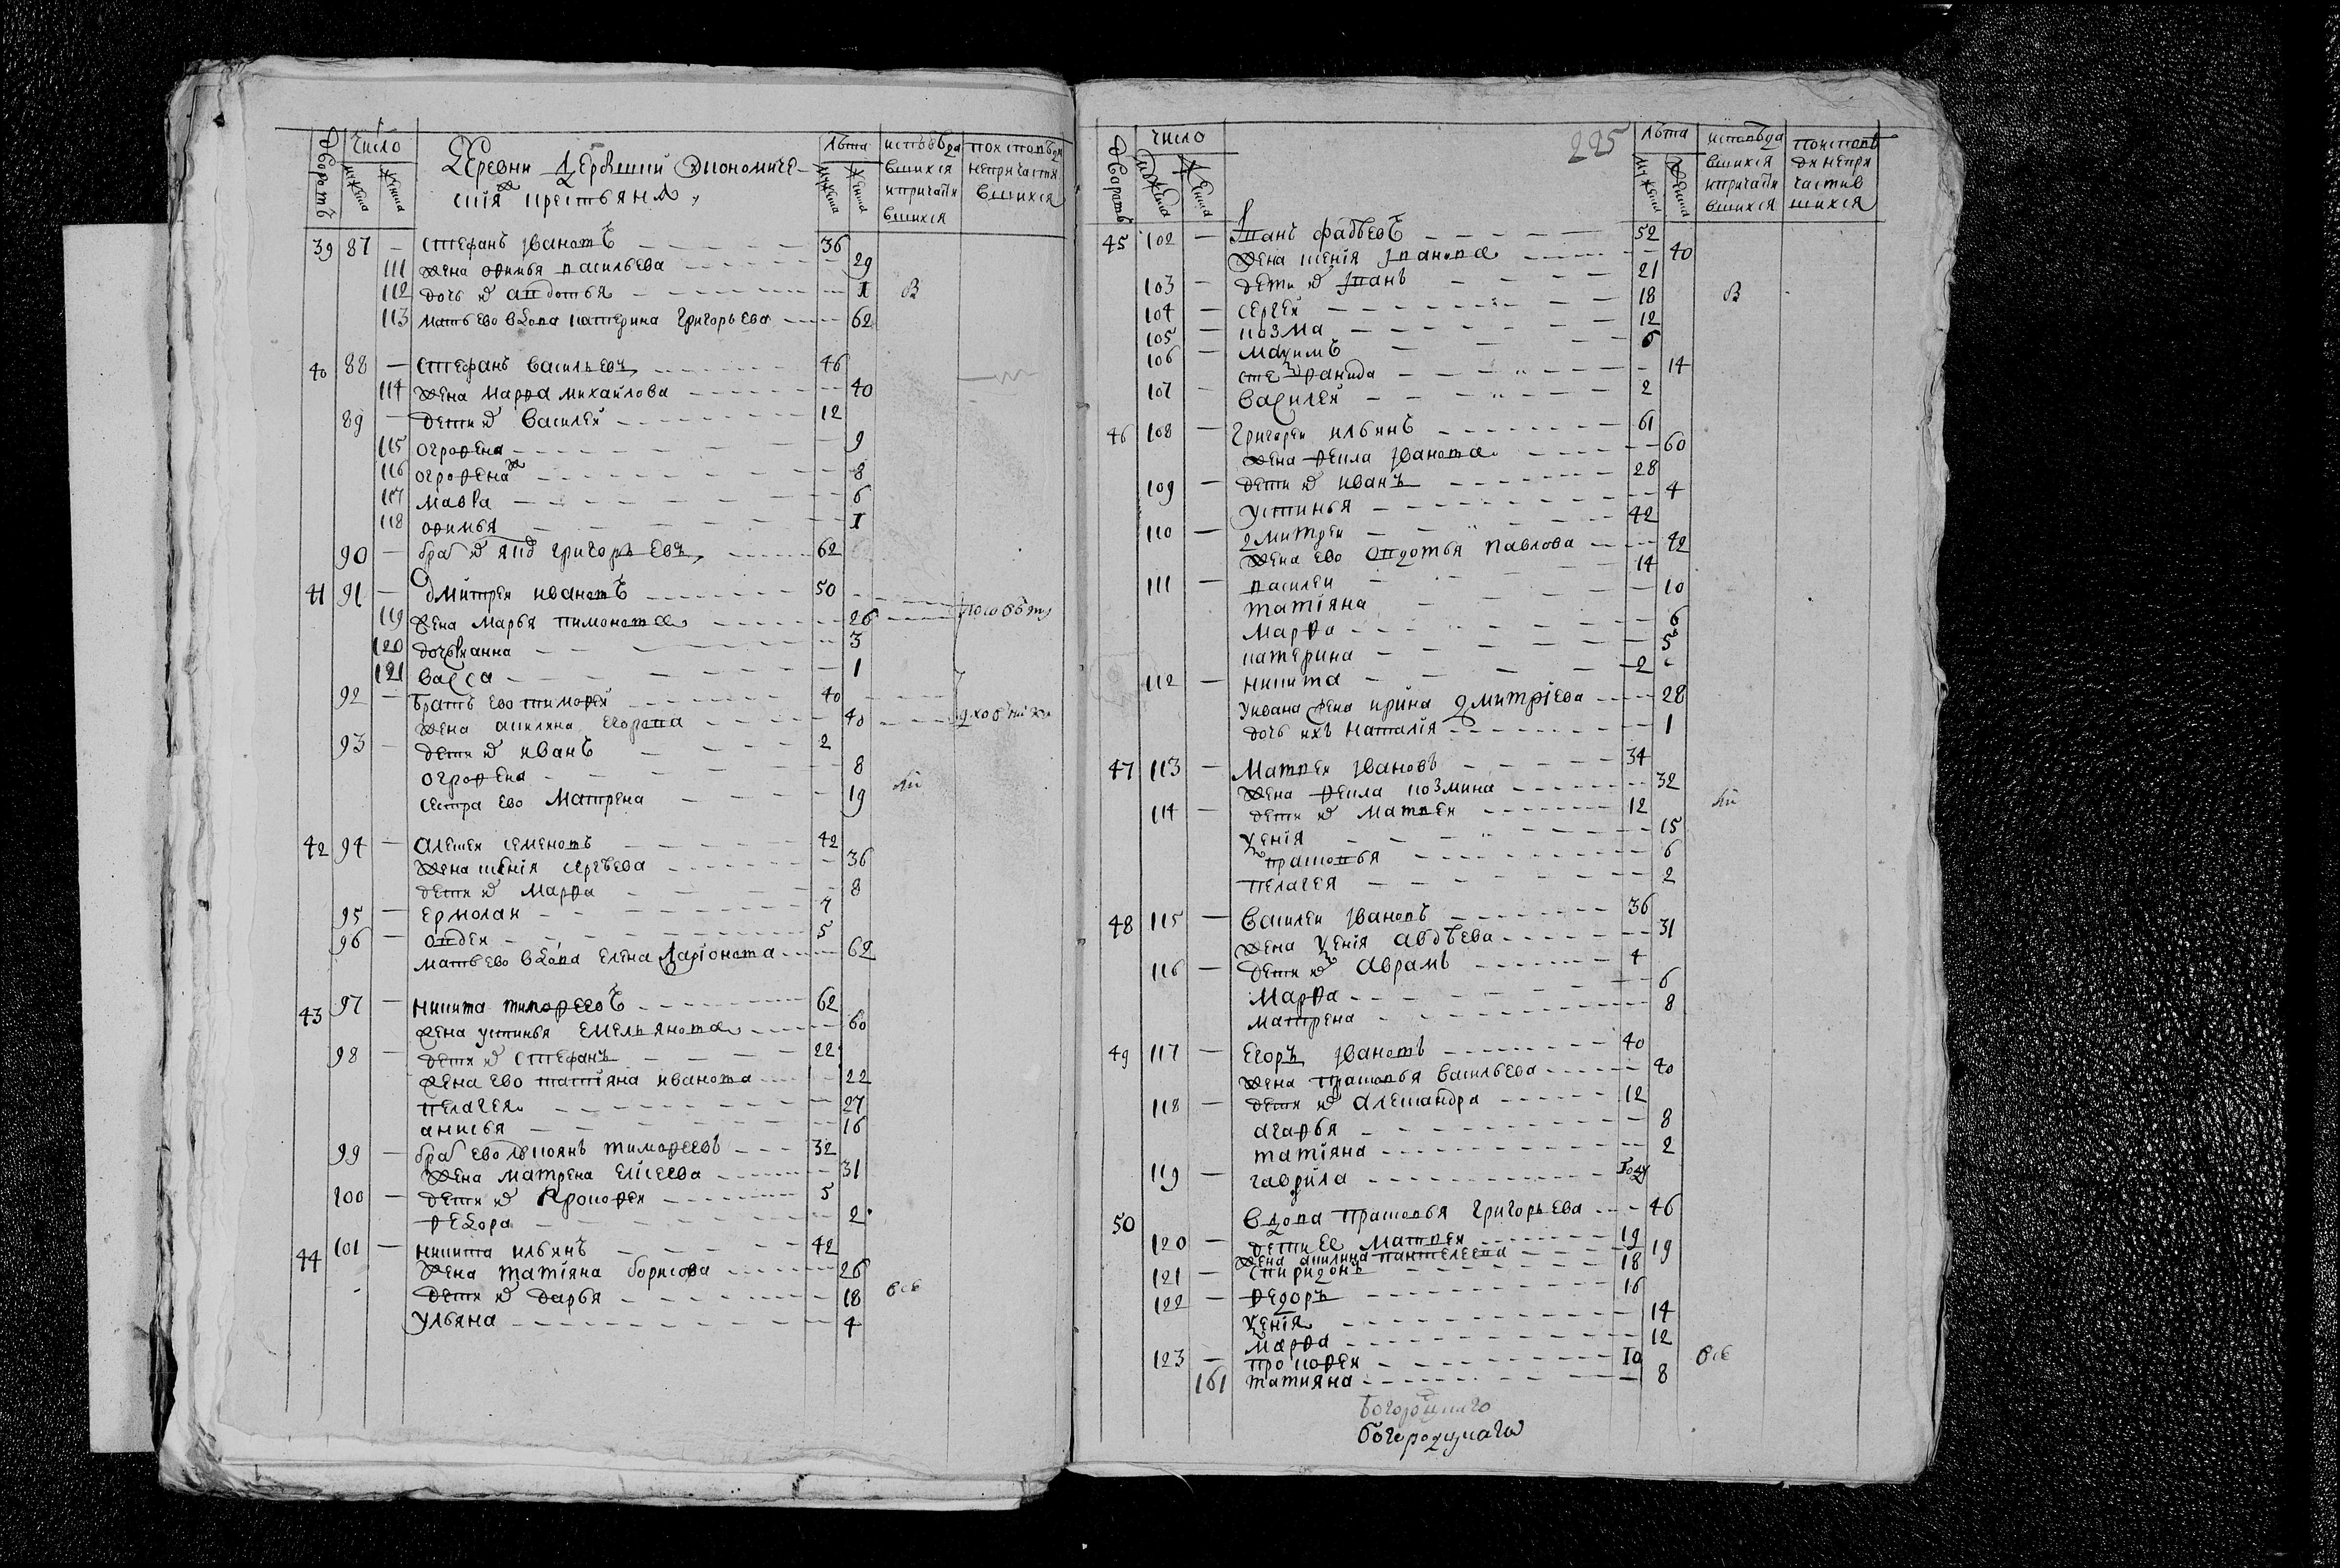 дворовъ число лѣта исповѣда
мужеска женска Деревни экономиче- мужеска женска вшихся непричастя
ския крестьяня, ипричастив вшихся
вшихся
39 87 — Стефанъ Ивановъ 36
111 жена офимья васильева 29
112 дочь их авдотья 1 В
113 мать ево вдова катерина григорьева 62
40 88 — Стефанъ васильевъ 46
114 жена марфа михаилова 40
89 — дети их василей 12
115 огрофена 9
116 огрофена ж 8
117 мавра 6
118 офимья 1
90 — григорьевъ 62
41 91 — дмитреи ивановъ 50
119 жена марья пимонова 26
120 дочь анна 3
121 васса 1
92 — братъ ево тимофеи 40
жена акилина егорова 40
93 — дети их иванъ 2
огрофена 8
сестра ево матрена 19
42 94 — алексеи семеновъ 42
жена ксенiя сергѣева 36
дети их марфа 8
95 — ермолаи 7
96 — овдеи 5
мать ево вдова елена ларiонова 62
43 97 — никита тимофеевъ 62
жена устинья емельянова 60
98 — дети их стефанъ 22
жена ево татiяна иванова 22
пелагея 27
анисья 16
99 — брат ево демиянъ тимофеевъ 32
жена матрена елисеева 31
100 — дети их прокофеи 5
федора 2
44 101 — никита ильинъ 42
жена татiяна борисова 26
дети их дарья 18 всѣ
ульяна 4
225
дворовъ число лѣта исповѣда поисповѣ
мужеска женска мужеска женска вшихся дa непри
ипричастив частив
вшихся шихся
45 102 — Иванъ фадѣевъ 52
жена ксенiя иванова 40
103 — дети их Иванъ 21
104 — сергеи 18 В
105 — козма 12
106 — маѯимъ 6
степанида 14
107 — василеи 2
46 108 — григореи ильинъ 61
жена фекла Иванова 60
109 — дети их иванъ 28
устинья 4
110 — дмитреи 42
жена ево овдотья павлова 42
111 — василеи 14
татiяна 10
марфа 6
катерина 5
112 — никита 2
у ивана жена ирина дмитрiева 28
дочь ихъ наталiя 1
47 113 — Матвеи Ивановъ 34
жена фекла козмина 32
114 — дети их матвеи 12
ѯенiя 15
прасковья 6
пелагея 2
48 115 — василеи Ивановъ 36
жена ѯенiя авдѣева 31
116 — дети их аврамъ 4
марфа 6
матрена 8
49 117 — Егоръ Ивановъ 40
жена прасковья васильева 40
118 — дети их алеѯандра 12
агафья 8
татiяна 2
119 — гаврила году
50 вдова прасковья григорьева 46
120 — дети ее матвеи 19
жена акилина пантелеева 19
121 — спиридонъ 18
122 — федоръ 16
ѯенiя 14
марфа 12
123 — прокофеи 10 всѣ
161 татияна 8
богородицкаго
богородицкаго